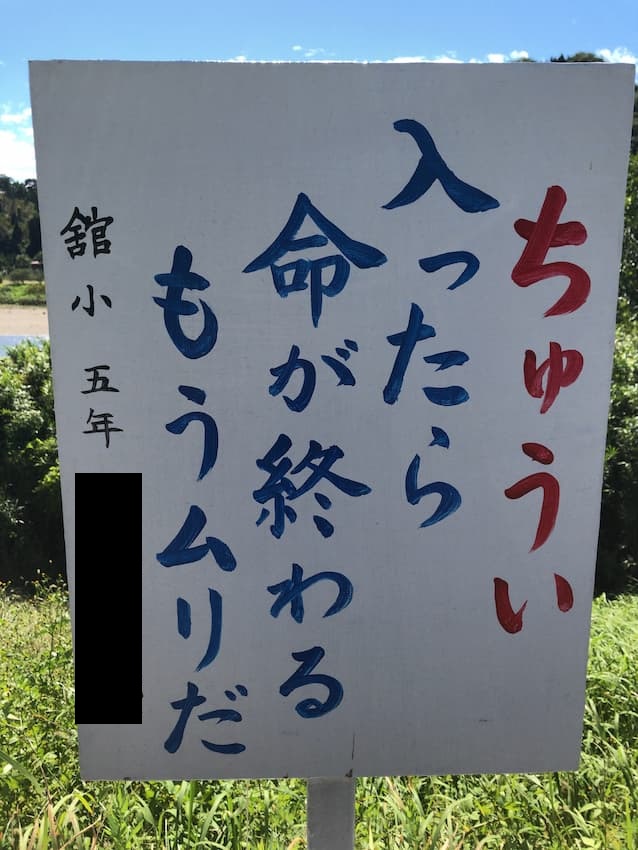 ちゅうい
入ったら
命が終わる
もうムリだ
舘小 五年